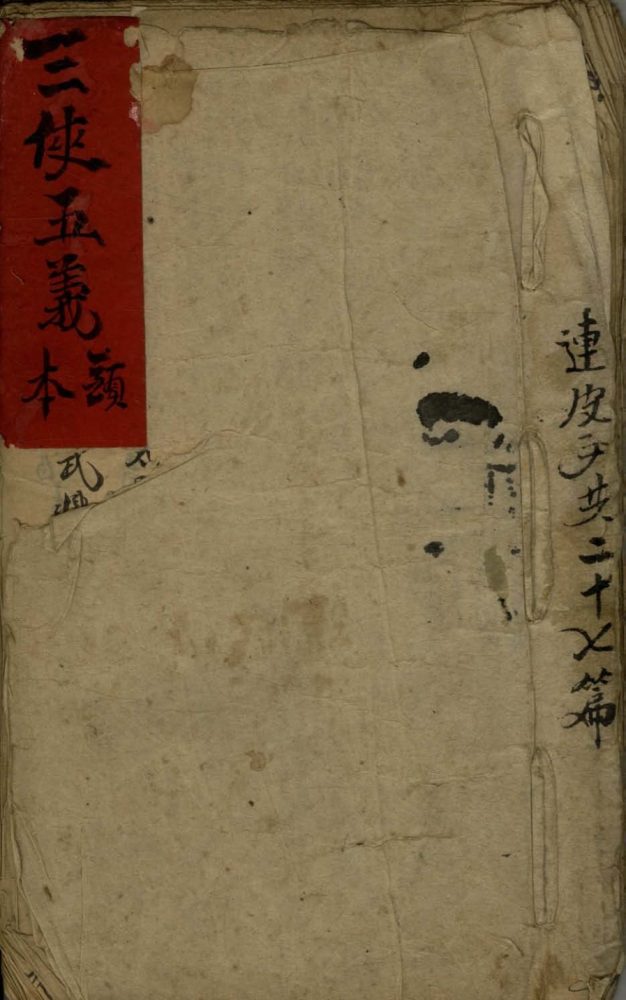 連皮子共二十七篇
三侠五義
頭本